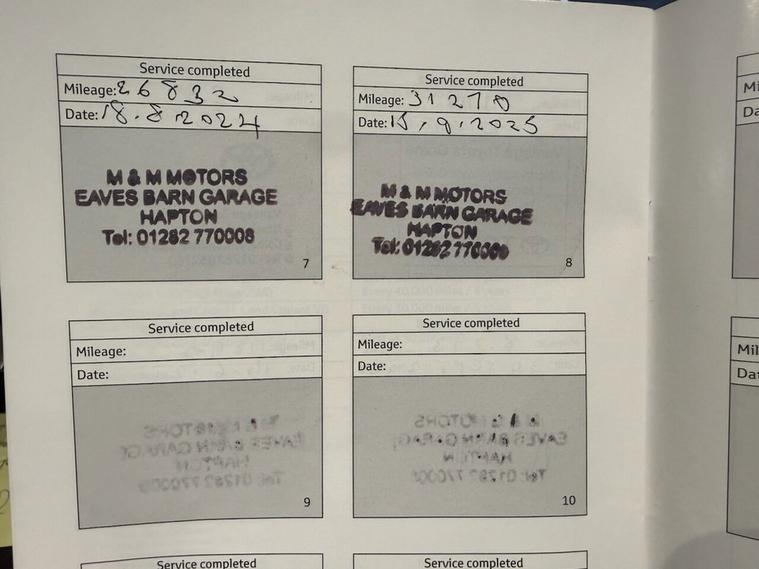 Service completed
Mileage: 26832
Date: 18.8.2024
M & M MOTORS
EAVES BARN GARAGE
HAPTON
Tel: 01282 770008
7
Service completed
Mileage: 31270
Date: 15.9.2025
M & M MOTORS
EAVES BARN GARAGE
HAPTON
Tel: 01282 770009
8
Service completed
Mileage:
Date:
9
Service completed
Mileage:
Date:
10
Service completed
Service completed